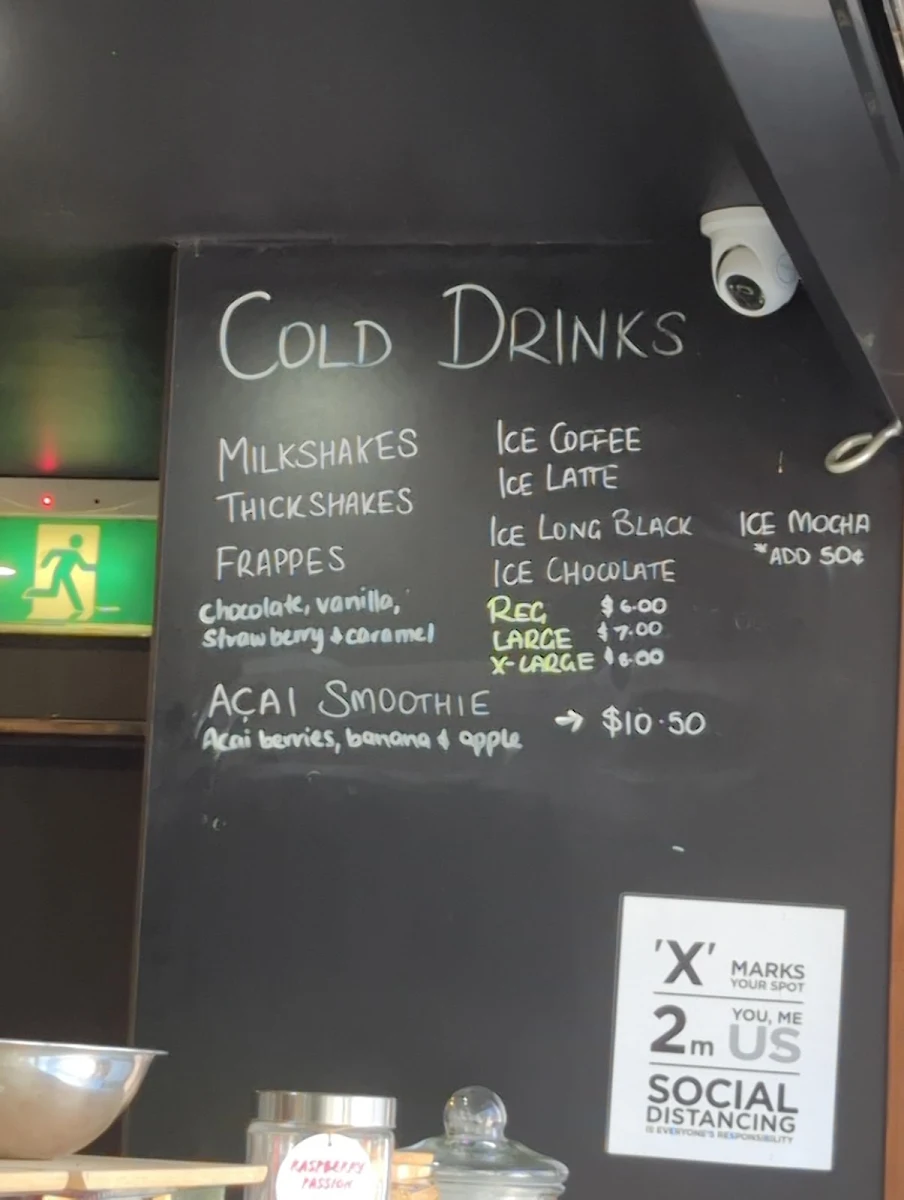 COLD DRINKS
MILKSHAKES
THICKSHAKES
FRAPPES
chocolate, vanilla,
strawberry & caramel
ICE COFFEE
ICE LATTE
ICE LONG BLACK
ICE CHOCOLATE
REG $6.00
LARGE $7.00
X-LARGE $8.00
ICE MOCHA
*ADD 50¢
AÇAI SMOOTHIE → $10.50
Acai berries, banana & apple
'X' MARKS
YOUR SPOT
2m YOU, ME
US
SOCIAL
DISTANCING
IS EVERYONE'S RESPONSIBILITY
RASPBERRY
PASSION